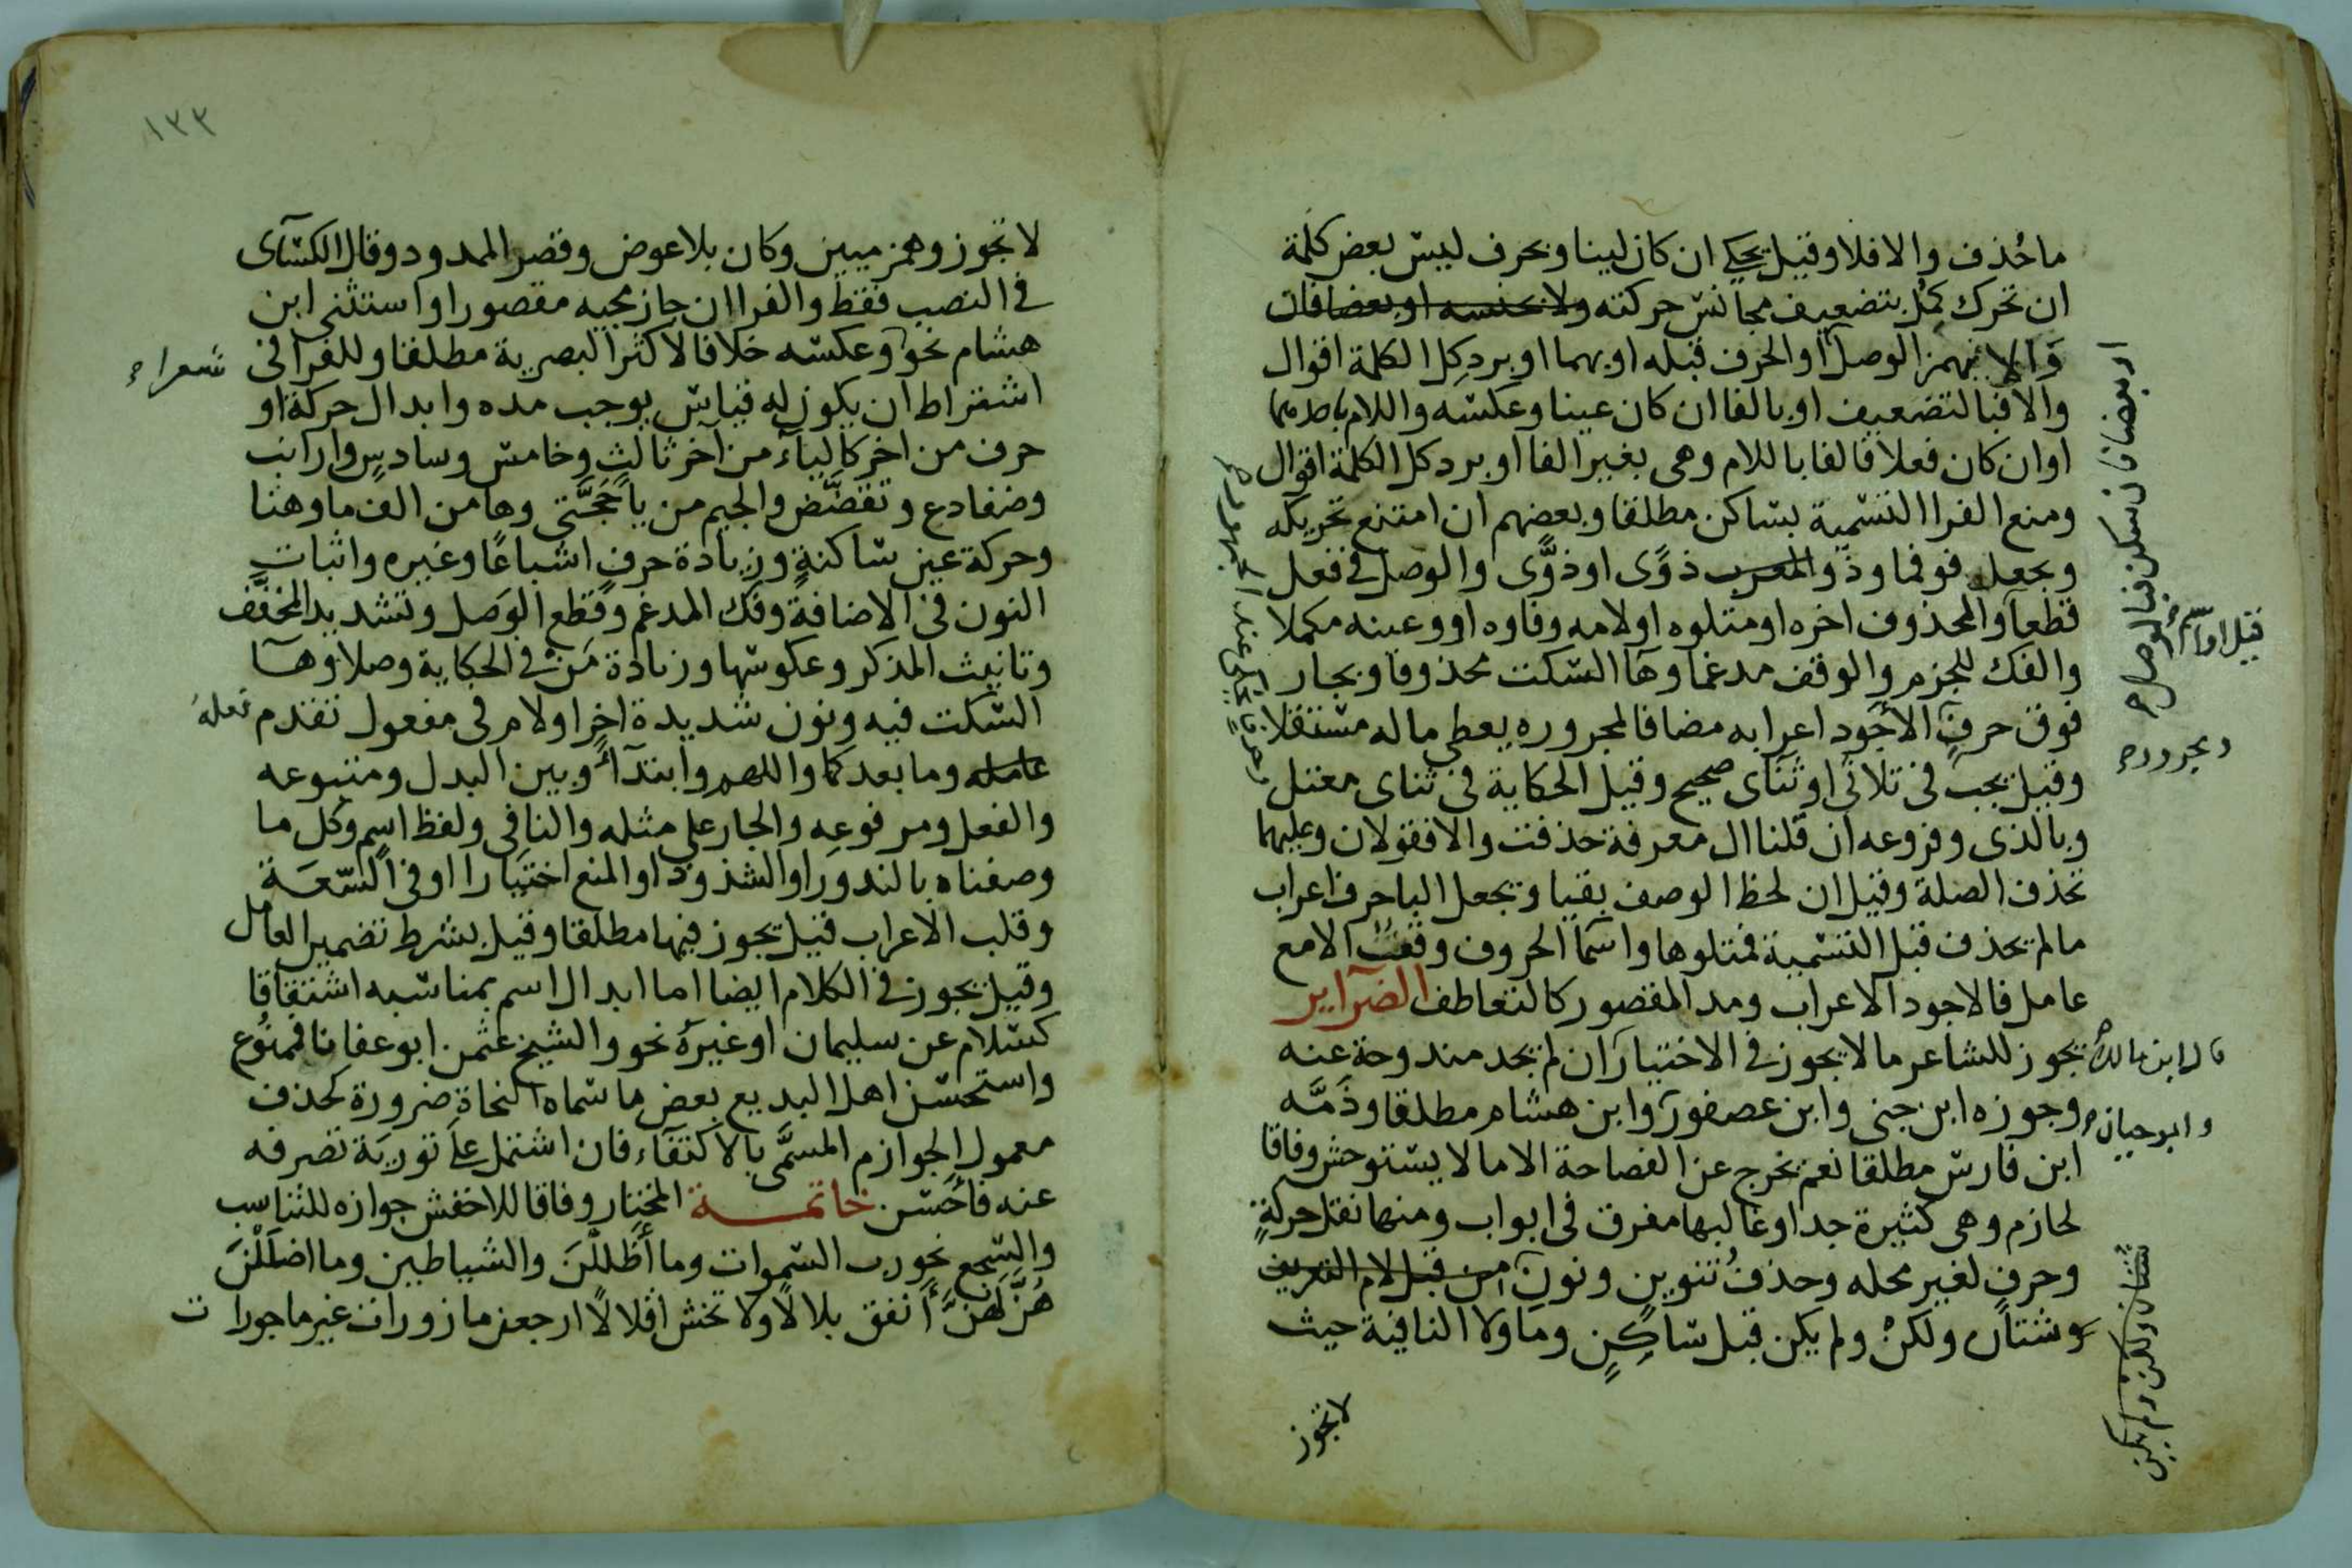 ما حُذف والافلا وقيل يحكى ان كان لينا وبحرف ليس بعض كلمة
ان تحرك كمل بتضعيف مجانس حركته ولا بجنسه او بعضا فان
والا فبهمز الوصل او الحرف قبله او بهما او برد كل الكلمة اقوال
والا فبالتضعيف او بالفا ان كان عينا وعكسه واللام باحدهما
او ان كان فعلا فالفا باللام وهى بغير الفا او برد كل الكلمة اقوال
ومنع الفرا التسمية بساكن مطلقا وبعضهم ان امتنع تحريكه
ويجعل فو فما وذو المعرب ذوًى او ذوًّى والوصل فى فعل
قطعا والمحذوف اخره او متلوه او لامه وفاوه او وعينه مكملا
والفك للجزم والوقف مدغما وها السكت محذوفا وبجار
فوق حرف الاجود اعرابه مضافا لمجروره يعطى ماله مستقلا
وقيل يجب فى ثلاثى او ثناى صحيح وقيل الحكاية فى ثناى معتل
وبالذى وفروعه ان قلنا ال معرفة حذفت والا فقولان وعليهما
تحذف الصلة وقيل ان لحظ الوصف بقيا وتجعل اليا حرف اعراب
ما لم تحذف قبل التسمية فمتلوها واسما الحروف وقفٌ الا مع
عامل فالاجود الاعراب ومد المقصور كالتعاطف الضراير
يجوز للشاعر ما لا يجوز فى الاختيار ان لم يجد مندوحة عنه
وجوزه ابن جنى وابن عصفور وابن هشام مطلقا وذمَّه
ابن فارس مطلقا نعم يخرج عن الفصاحة الا ما لا يستوحش وفاقا
لحازم وهى كثيرة جدا وغالبها مفرق فى ابواب ومنها نقل حركةٍ
وحرفٍ لغير محله وحذفُ تنوين ونون من قبل لام التعريف
وشتان ولكنْ ولم يكن قبل ساكنٍ وما ولا النافية حيث
لا تجوز
او بعضا فان سكن فبالوصل
قيل او اسم
ومجروره
قال ابن مالك
وابو حيان
شتان ولكن ولم يكن
١٣٣
لا تجوز وهمز ميين وكان بلا عوض وقصر الممدود وقال الكسآى
فى النصب فقط والفرا ان جاز مجيه مقصورا واستثنى ابن
هشام نحو وعكسه خلافا لاكثر البصرية مطلقا وللفرآ فى
شعراء
اشتراط ان يكون له قياس يوجب مده وابدال حركة او
حرف من اخر كاليآء من آخر ثالثٍ وخامس وسادسٍ وارانب
وضفادع وتقضَّض والجيم من يا حَجَّتى وها من الف ما وهنا
وحركة عين ساكنةٍ وزيادة حرفٍ اشباعًا وغيره واثبات
النون فى الاضافة وفك المدغم وقطع الوَصل وتشديد المخفَّف
وتانيث المذكر وعكوسها وزيادة مَنْ فى الحكاية وصلا وهآ
السكت فيه ونون شديدة اخرا ولام فى مفعول تقدم
عامله وما بعد كما واللهم وابتدآء وبين البدل ومتبوعه
والفعل ومرفوعه والجار على مثله والنافى ولفظ اسم وكل ما
وصفناه بالندور او الشذوذ او المنع اختيارا او فى السّعَة
وقلب الاعراب قيل يجوز فيها مطلقا وقيل بشرط تضمير العامل
وقيل يجوز فى الكلام ايضا اما ابدال اسم بمناسبه اشتقاقا
كسلام عن سليمان او غيره نحو والشيخ عثمن ابو عفانا فممنُوع
واستحسن اهل البديع بعض ما سماه النحاة ضرورة كحذف
معمول الجوازم المسمَّى بالاكتفآء فان اشتمل على تورية تصرفه
عنه فاحُسن خاتمــة المختار وفاقا للاخفش جوازه للتناسب
والسّجع نحو رب السّموات وما أَظْلَلْنَ والشياطين وما اضلَلْنَ
هُنَّ لَهُنَّ أنفق بلالًا ولا تخش اقلالًا ارجعن مازورات غير ماجورات